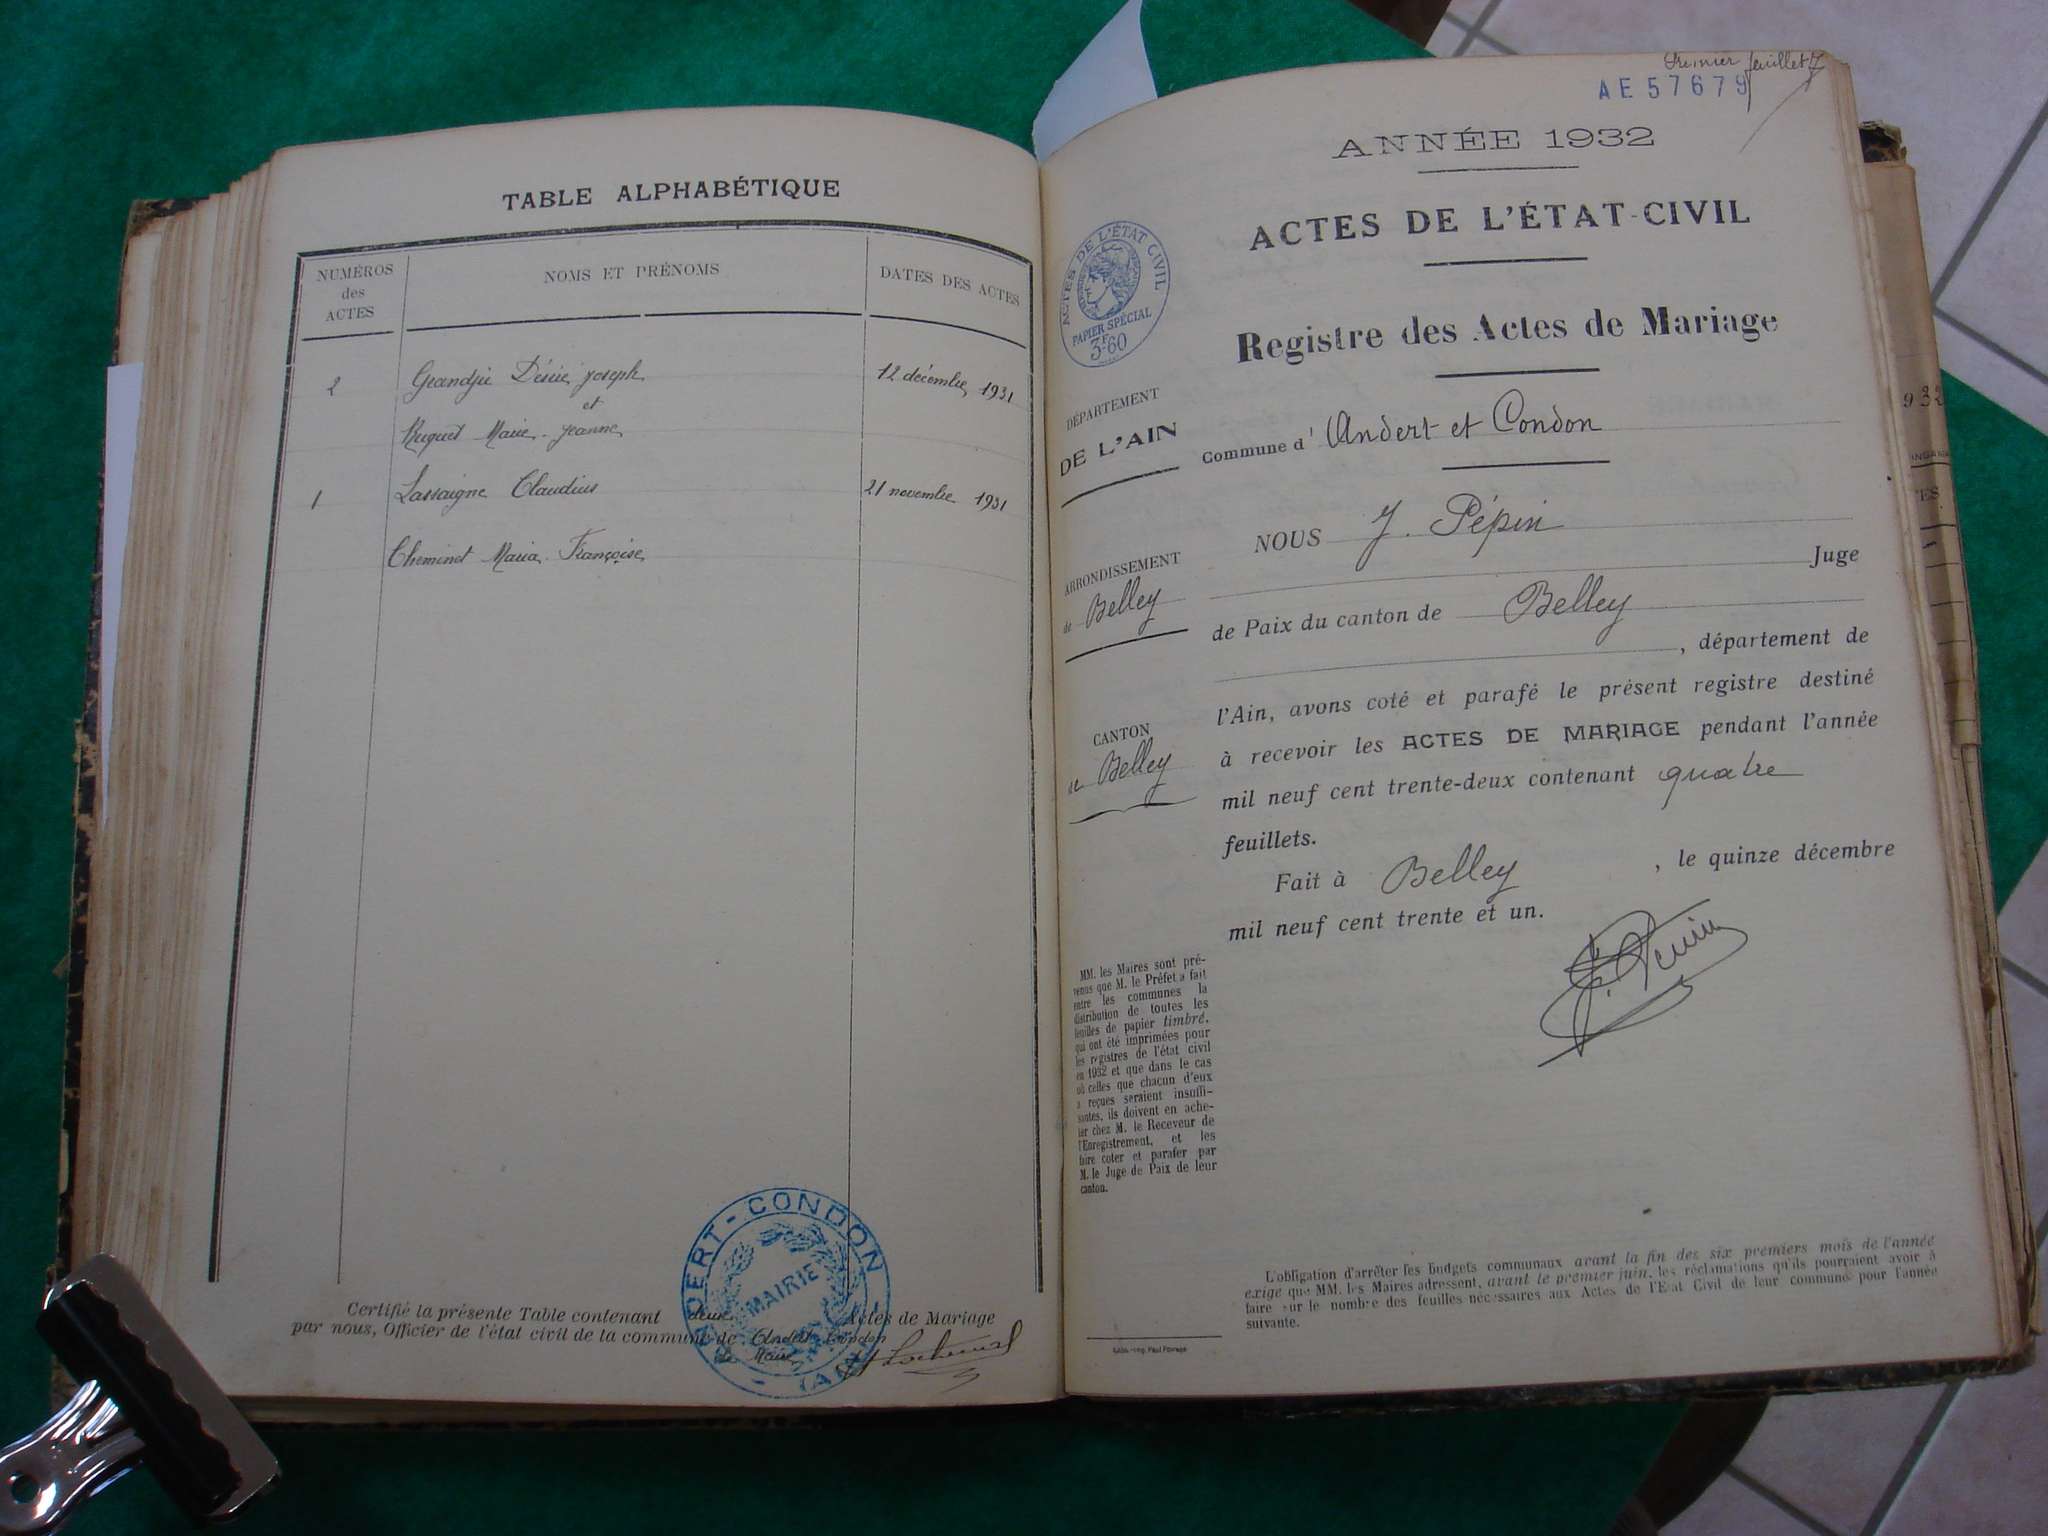 TABLE ALPHABÉTIQUE
NUMÉROS
des
ACTES
NOMS ET PRÉNOMS
DATES DES ACTES
2 Désiré Joseph 12 décembre 1931
et
Huguet Marie-Jeanne
1 Lassaigne Claudius 21 novembre 1931
Cheminet Maria Françoise
Certifié la présente Table contenant deux Actes de Mariage
par nous, Officier de l'état civil de la commune de Andert-Condon
Le Maire
ANDERT-CONDON
MAIRIE
(AIN)
Premier feuillet
AE 57679
ANNÉE 1932
ACTES DE L'ÉTAT-CIVIL
ACTES DE L'ÉTAT CIVIL
PAPIER SPÉCIAL
3F60
Registre des Actes de Mariage
DÉPARTEMENT
DE L'AIN
Commune d' Andert et Condon
NOUS J. Pépin
Juge
ARRONDISSEMENT
de Belley
de Paix du canton de Belley
, département de
l'Ain, avons coté et parafé le présent registre destiné
CANTON
de Belley
à recevoir les ACTES DE MARIAGE pendant l'année
mil neuf cent trente-deux contenant quatre
feuillets.
Fait à Belley , le quinze décembre
mil neuf cent trente et un.
J. Pépin
MM. les Maires sont pré-
venus que M. le Préfet a fait
entre les communes la
distribution de toutes les
feuilles de papier timbré,
qui ont été imprimées pour
les registres de l'état civil
en 1932 et que dans le cas
où celles que chacun d'eux
a reçues seraient insuffi-
santes, ils doivent en ache-
ter chez M. le Receveur de
l'Enregistrement, et les
faire coter et parafer par
M. le Juge de Paix de leur
canton.
L'obligation d'arrêter les budgets communaux avant la fin des six premiers mois de l'année
exige que MM. les Maires adressent, avant le premier juin, les réclamations qu'ils pourraient avoir à
faire sur le nombre des feuilles nécessaires aux Actes de l'Etat Civil de leur commune pour l'année
suivante.
932